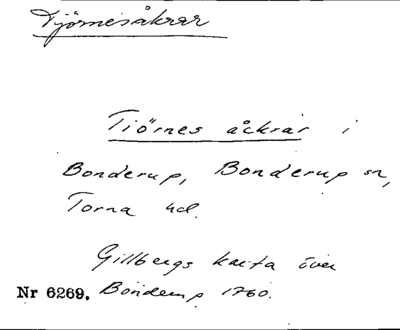 Tjörnesåkrar
Tiörnes åckrar i
Bonderup, Bonderup sn,
Torna hd.
Gillbergs karta över
Nr 6269. Bonderup 1760.